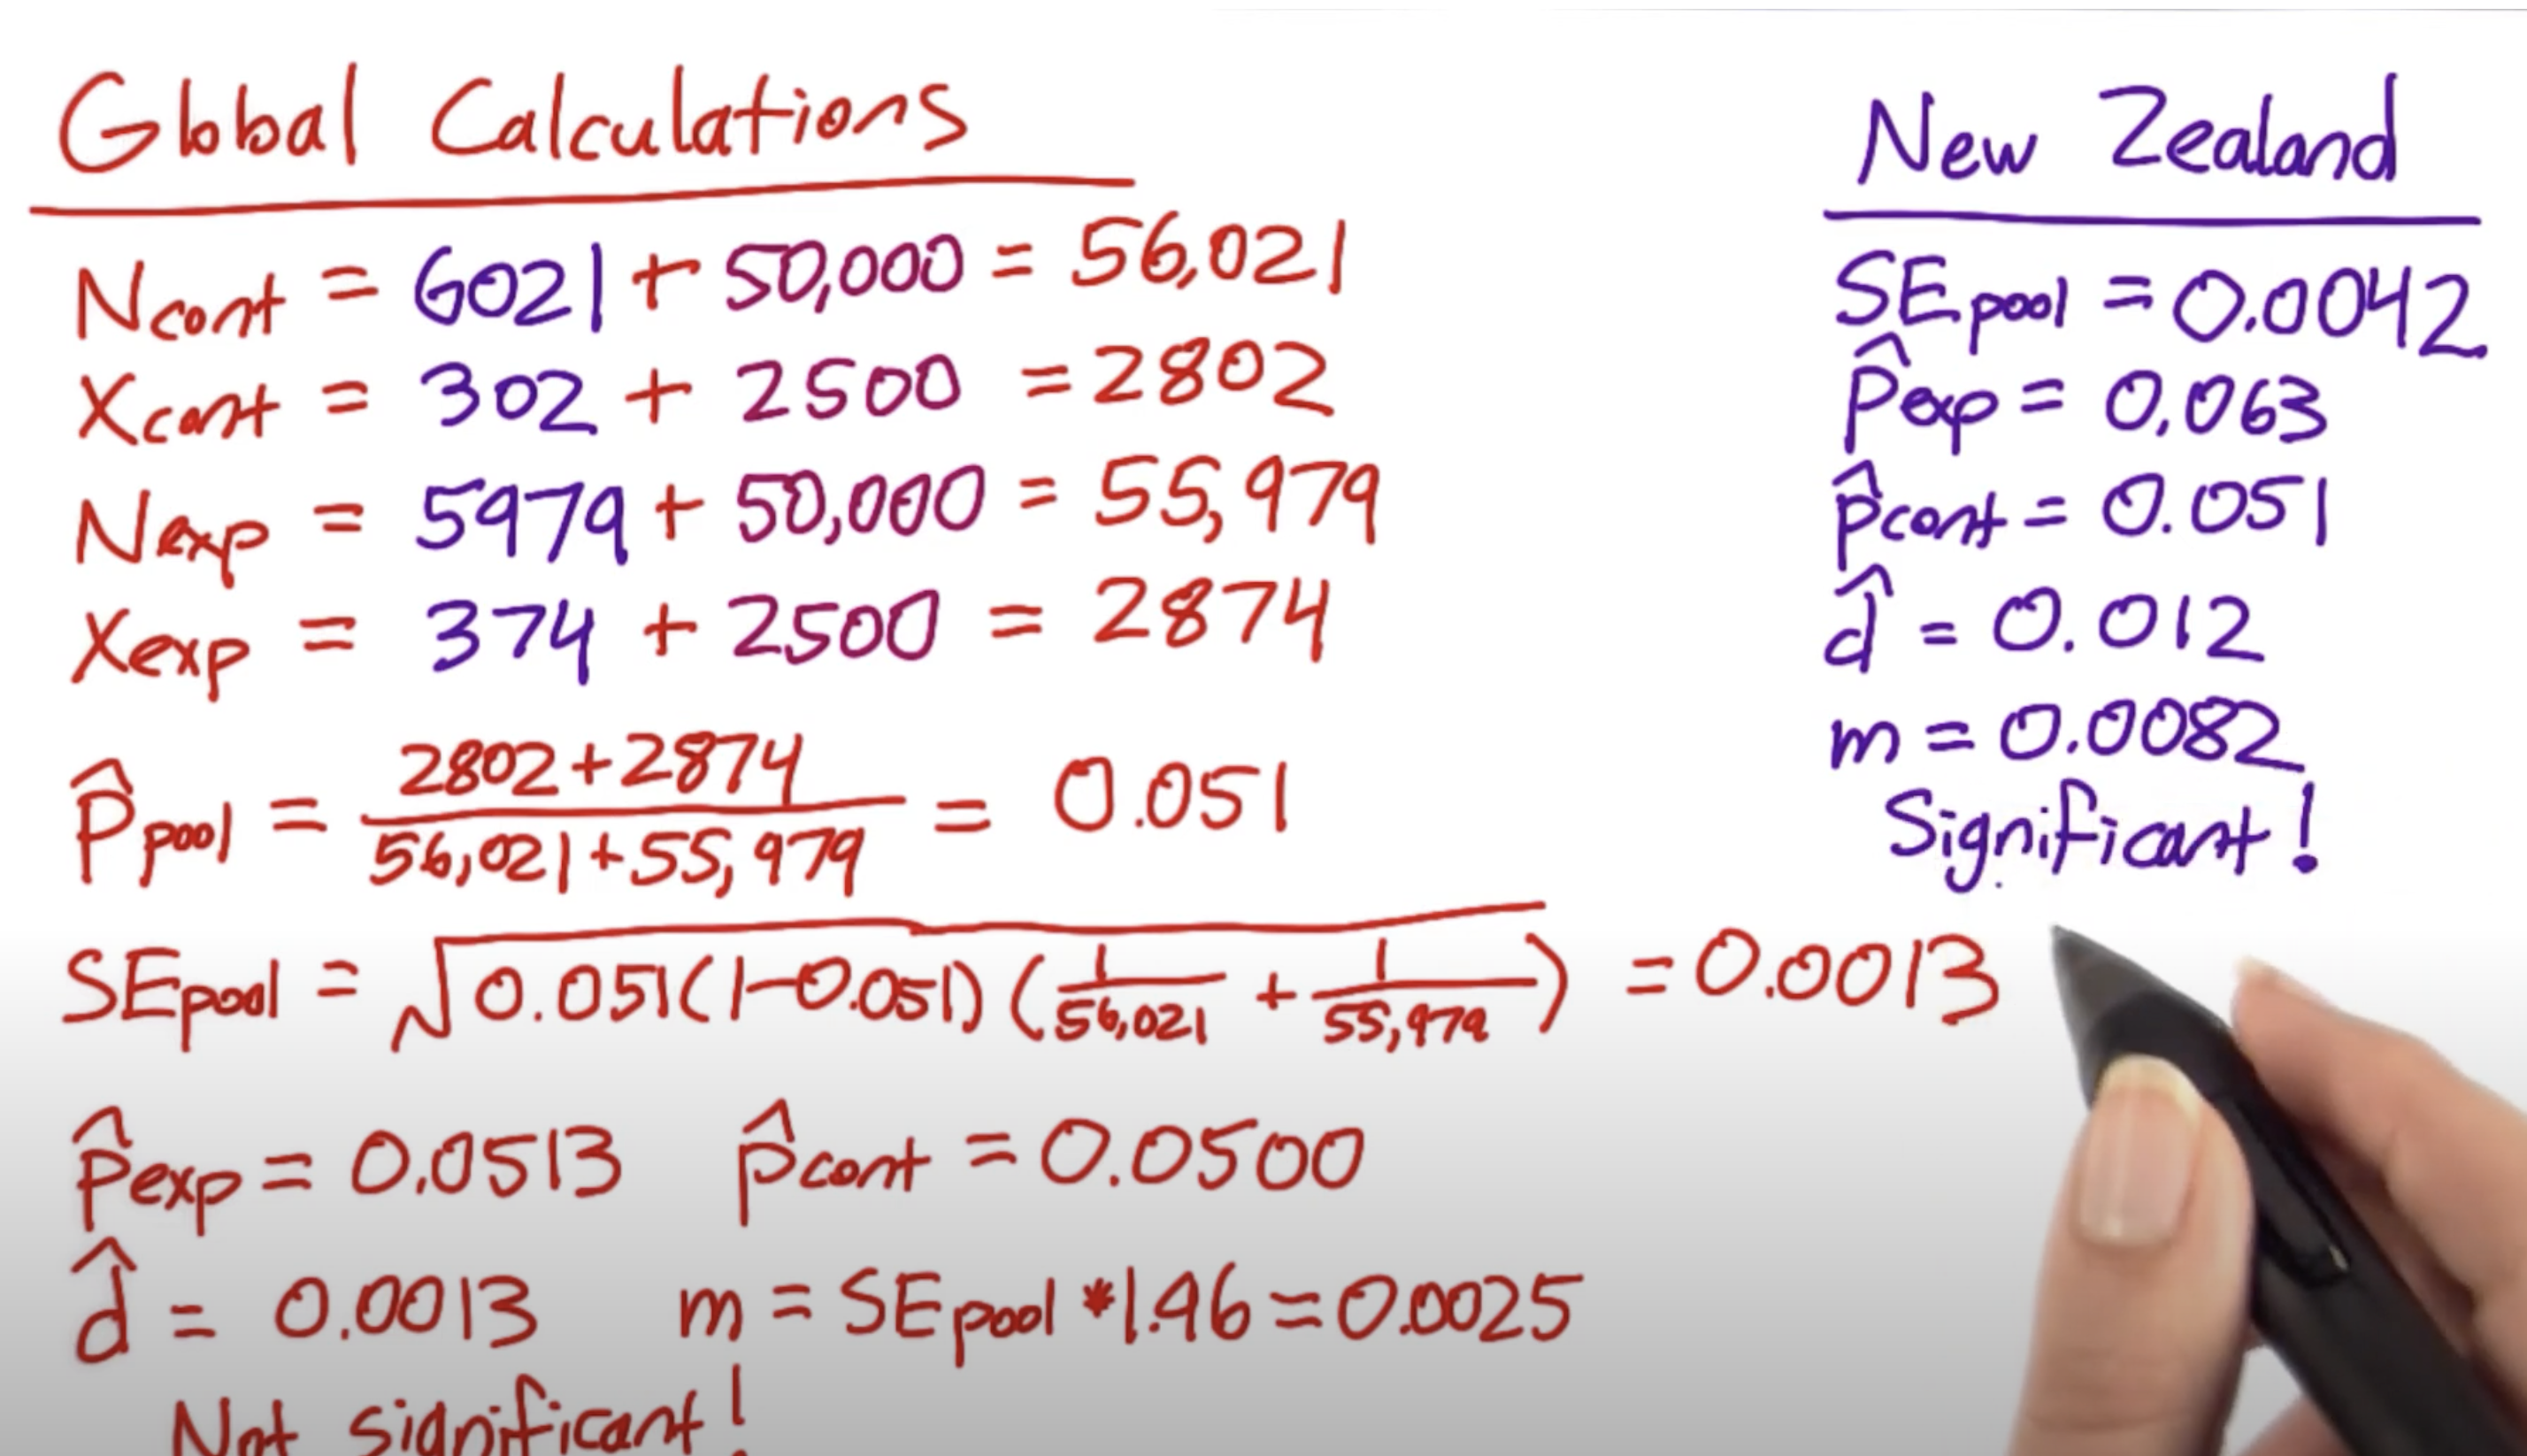 Global Calculations
N_cont = 6021 + 50,000 = 56,021
X_cont = 302 + 2500 = 2802
N_exp = 5979 + 50,000 = 55,979
X_exp = 374 + 2500 = 2874
p̂_pool = (2802+2874)/(56,021+55,979) = 0.051
SE_pool = √(0.051(1-0.051)(1/56,021 + 1/55,979)) = 0.0013
p̂_exp = 0.0513 p̂_cont = 0.0500
d̂ = 0.0013 m = SE_pool * 1.96 = 0.0025
Not significant!
New Zealand
SE_pool = 0.0042
p̂_exp = 0.063
p̂_cont = 0.051
d̂ = 0.012
m = 0.0082
Significant!